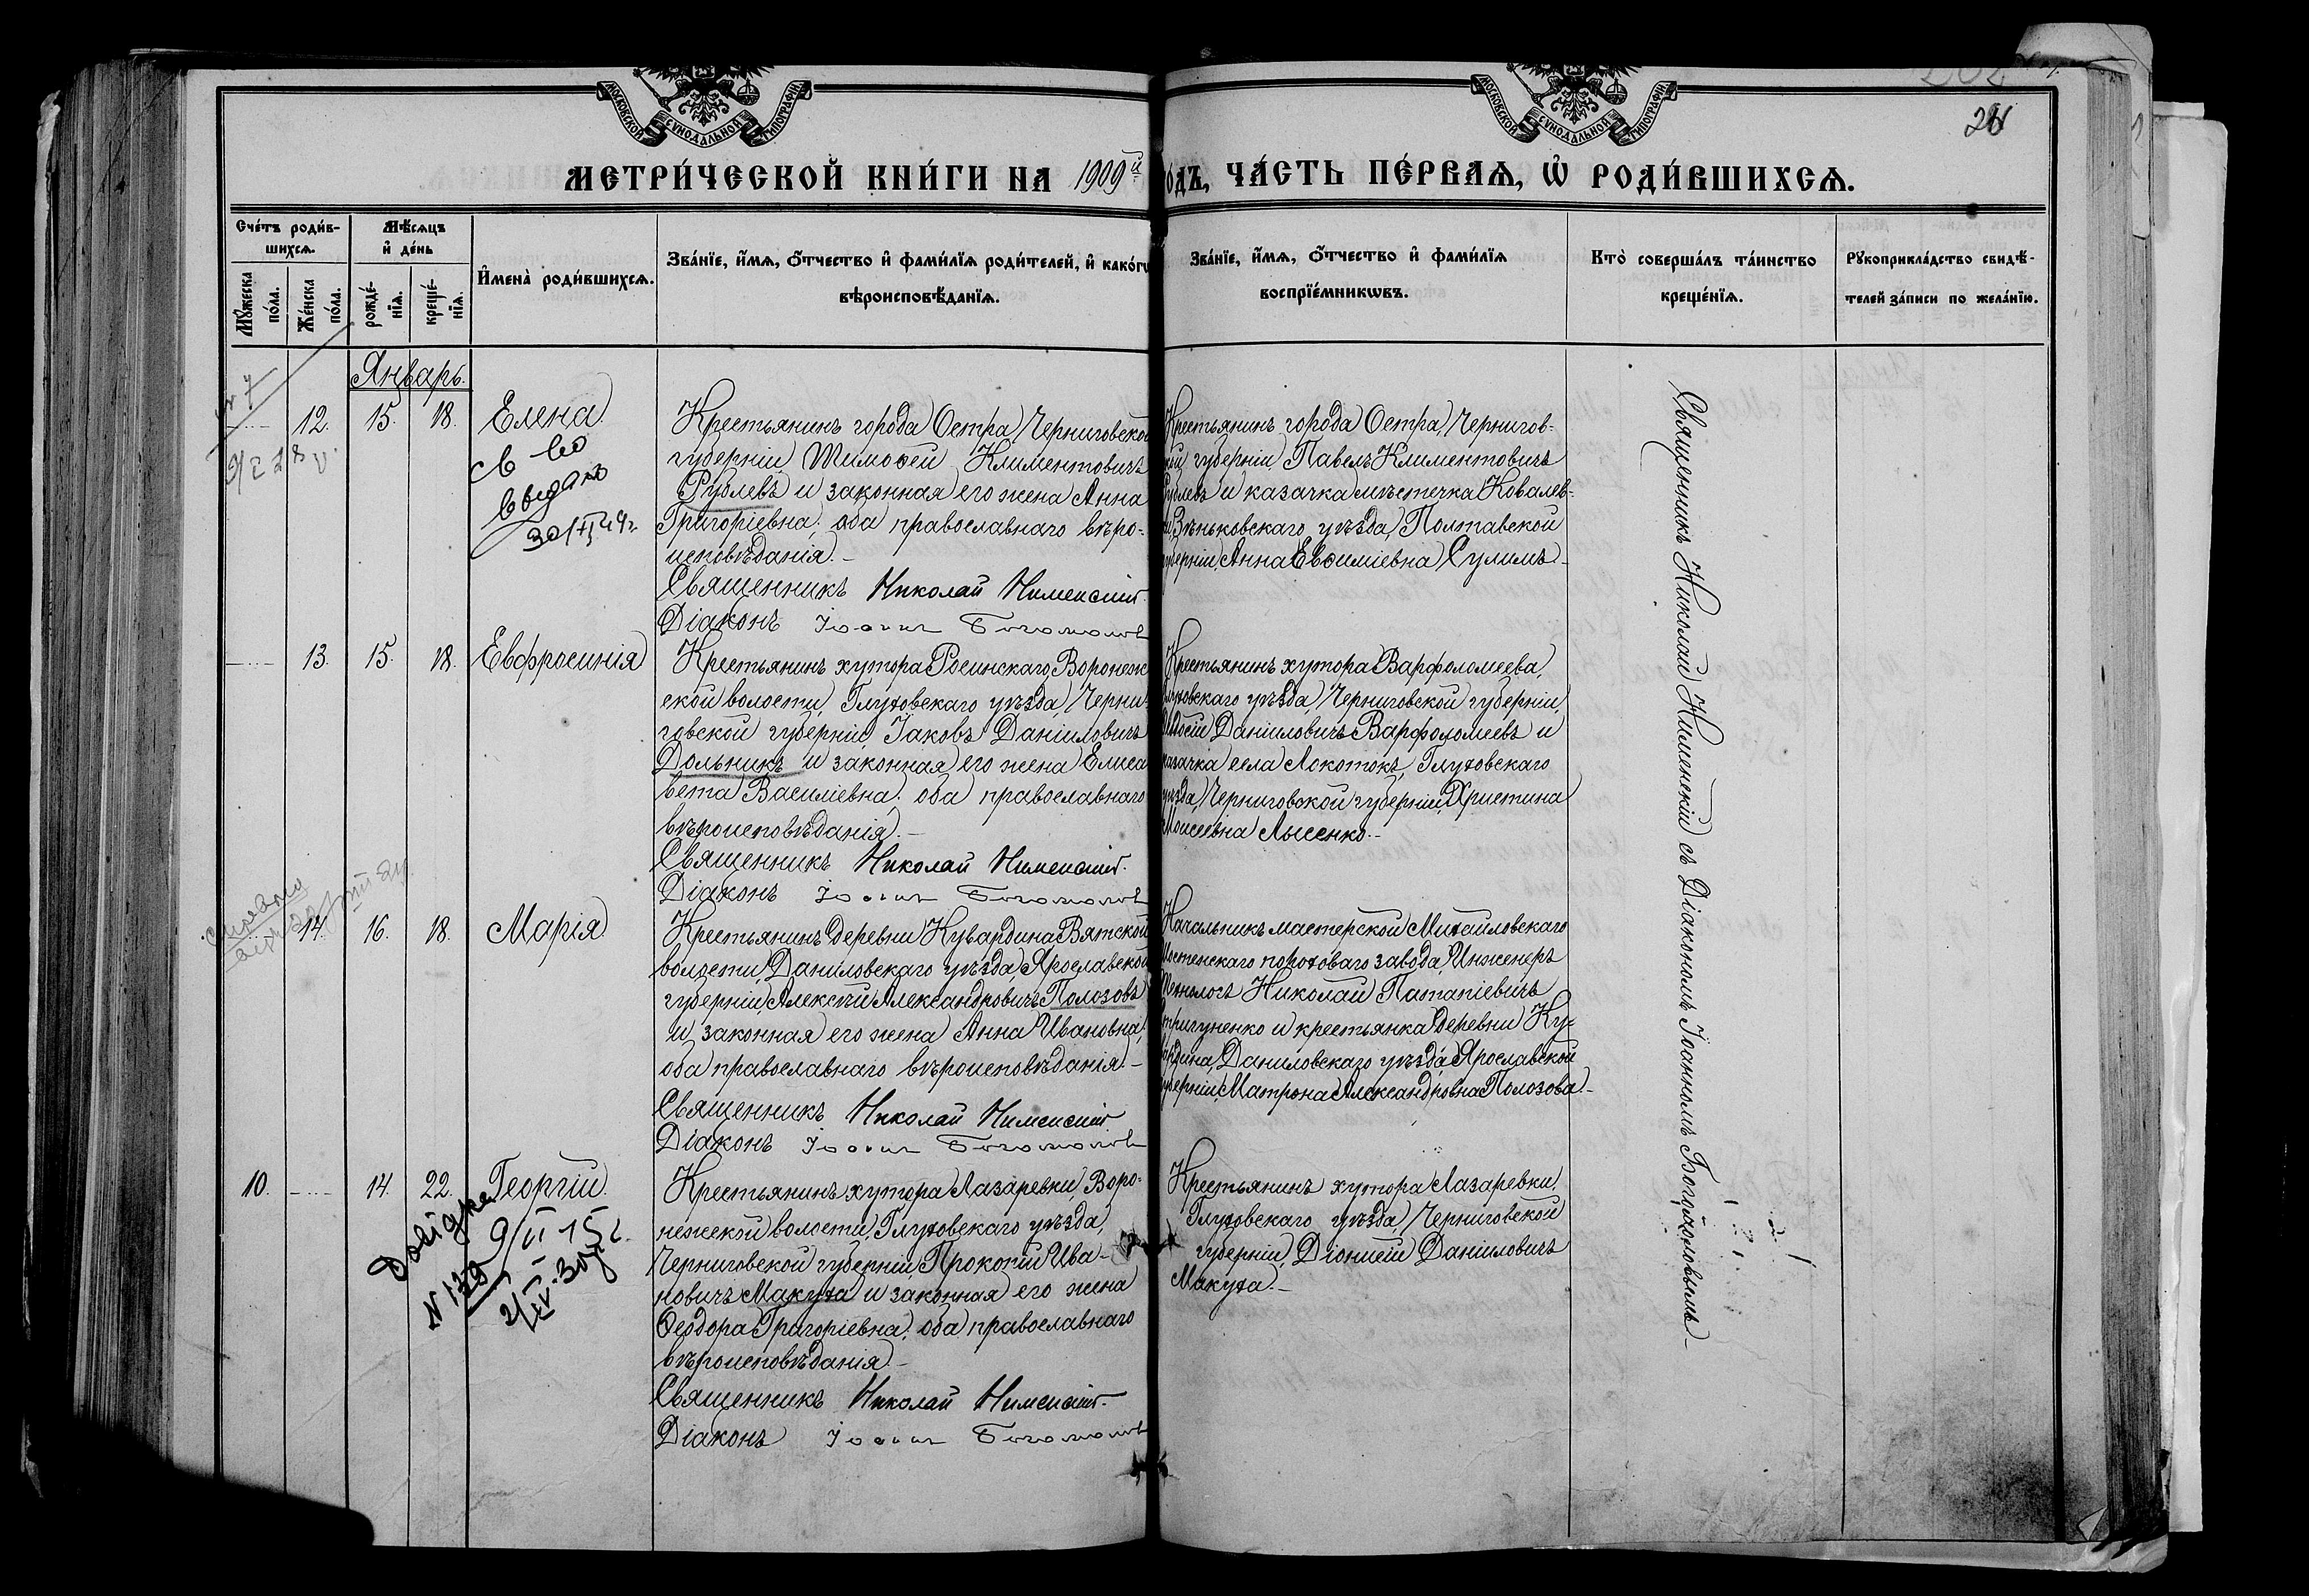 МОСКОВСКОЙ СѴНОДАЛЬНОЙ ТИПОГРАФІИ
МОСКОВСКОЙ СѴНОДАЛЬНОЙ ТИПОГРАФІИ
МЕТРИ́ЧЕСКОЙ КНИ́ГИ НА 1909й
о́дъ, ЧА́СТЬ ПЕ́РВАѦ, Ѡ҆ РОДИ́ВШИХСѦ.
Сче́тъ роди́в-
шихсѧ.
Мꙋ́жеска по́ла.
Же́нска по́ла.
Мѣ́сѧцъ
и҆ де́нь
рожде́-
нїѧ.
креще́-
нїѧ.
И҆мена̀ роди́вшихсѧ.
Зва́нїе, и҆́мѧ, ѻ҆́тчество и҆ фами́лїѧ роди́телей, и҆ како́гѡ
вѣроисповѣ́данїѧ.
Зва́нїе, и҆́мѧ, ѻ҆́тчество и҆ фами́лїѧ
воспрїе́мникѡвъ.
Кто̀ соверша́лъ та́инство
креще́нїѧ.
Рꙋкоприкла́дство свидѣ́-
телей за́писи по жела́нїю.
Январь.
12. 15. 18. Елена
св-во
выдано
30/XI 49г.
Крестьянинъ города Остра, Черниговской
губерніи Тимоѳей Климентовичъ
Рублевъ и законная его жена Анна
Григоріевна; оба православнаго вѣро-
исповѣданія.-
Священникъ Николай Нименскій.
Діаконъ Іоаннъ Богомоловъ
Крестьянинъ города Остра, Чернигов-
ской губерніи Павелъ Климентовичъ
Рублевъ и казачка мѣстечка Ковалев-
ки, Зѣньковскаго уѣзда, Полтавской
губерніи, Анна Евѳиміевна Сулимъ.-
13. 15. 18. Евфросинія
Крестьянинъ хутора Росинскаго, Воронеж
ской волости, Глуховскаго уѣзда, Черни-
говской губерніи, Іаковъ Даніиловичъ
Дольникъ и законная его жена Елиса
вета Василіевна; оба православнаго
вѣроисповѣданія.-
Священникъ Николай Нименскій.
Діаконъ Іоаннъ Богомоловъ
Крестьянинъ хутора Варфоломеева,
Глуховскаго уѣзда, Черниговской губерніи,
Даніиловичъ Варфоломеевъ и
казачка села Локотокъ, Глуховскаго
уѣзда, Черниговской губерніи, Христина
Моисеевна Лысенко.-
14. 16. 18. Марія
Крестьянинъ деревни Кувардина Вятской
волости, Даниловскаго уѣзда, Ярославской
губерніи, Алексѣй Александровичъ Полозовъ
и законная его жена Анна Ивановна;
оба православнаго вѣроисповѣданія.-
Священникъ Николай Нименскій.
Діаконъ Іоаннъ Богомоловъ
Начальникъ мастерской Михайловскаго
Шостенскаго пороховаго завода, Инженеръ
Технологъ Николай Патапіевичъ
Стригуненко и крестьянка деревни Ку-
вардина, Даниловскаго уѣзда, Ярославской
губерніи, Матрона Александровна Полозова.-
10. 14. 22. Георгій.
N 120 9/II 15г.
Крестьянинъ хутора Лазаревки, Воро-
нежской волости, Глуховскаго уѣзда,
Черниговской губерніи, Прокопій Ива-
новичъ Макуха и законная его жена
Ѳеодора Григоріевна; оба православнаго
вѣроисповѣданія.-
Священникъ Николай Нименскій.
Діаконъ Іоаннъ Богомоловъ
Крестьянинъ хутора Лазаревки,
Глуховскаго уѣзда, Черниговской
губерніи, Діонисій Даніиловичъ
Макуха.-
Священникъ Николай Нименскій съ Діакономъ Іоанномъ Богомоловымъ.-